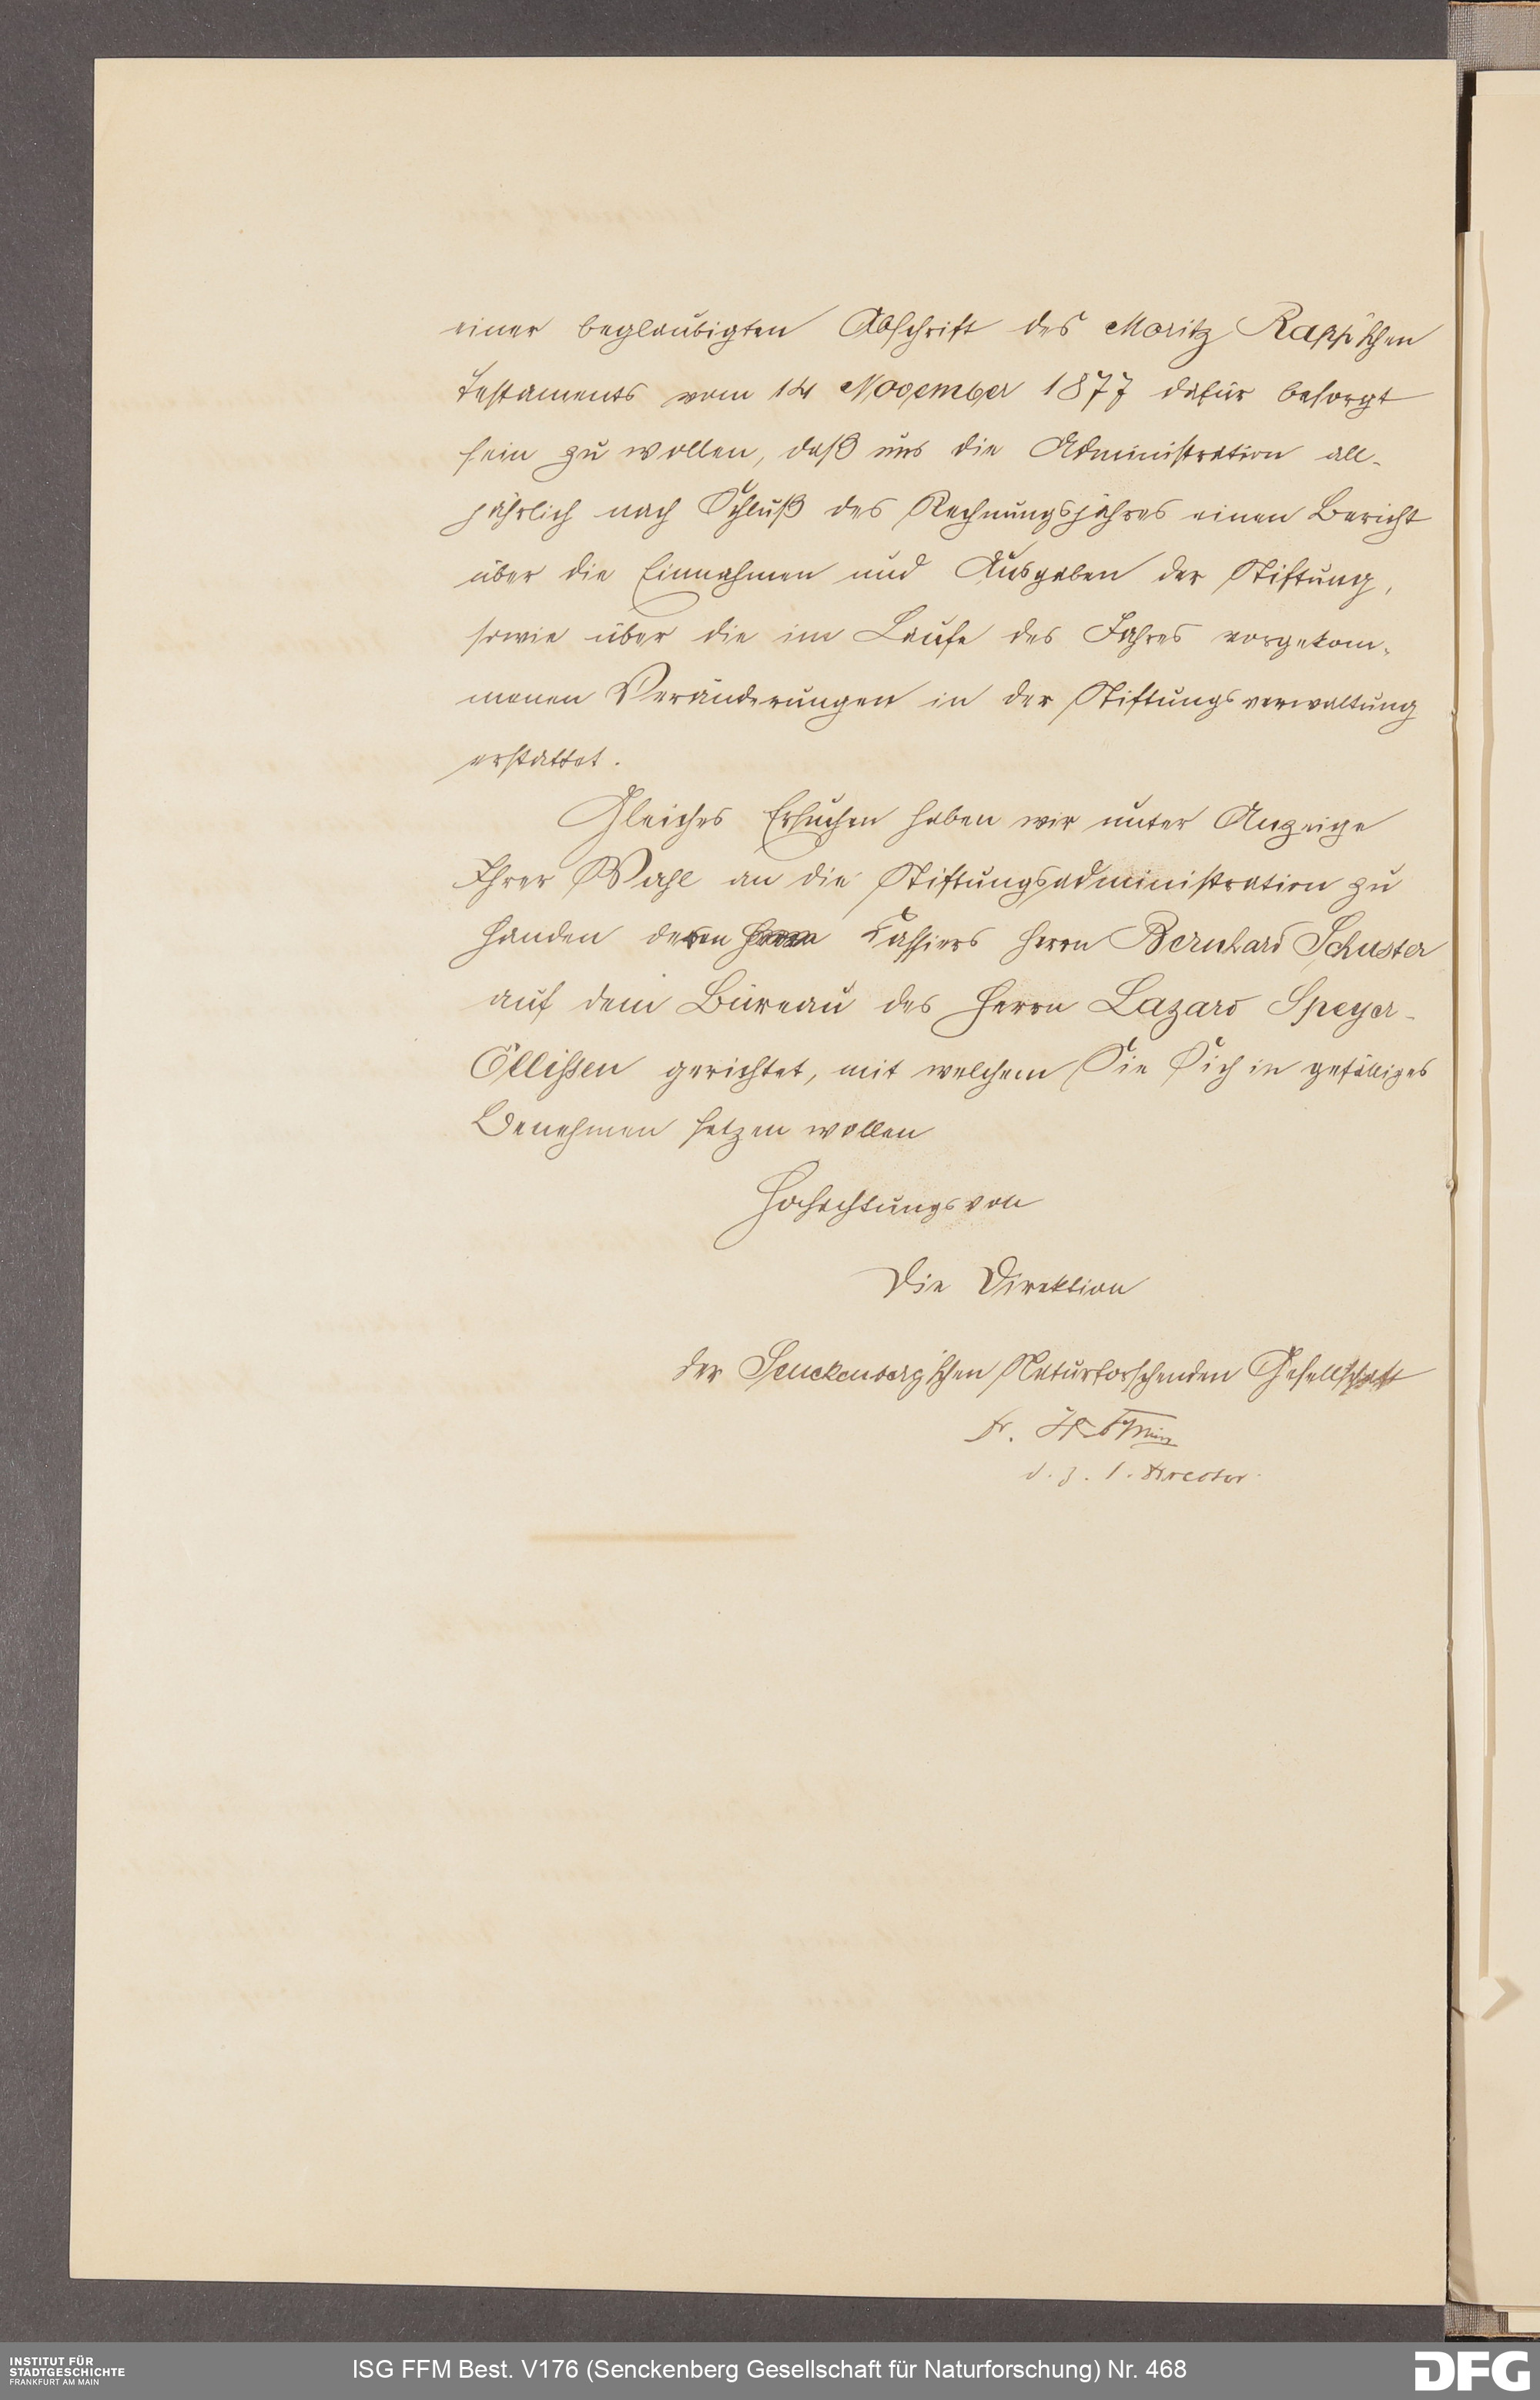 einer beglaubigten Abschrift des Moritz Rapp'schen
Testaments vom 14 November 1877 dafür besorgt
sein zu wollen, daß uns die Administration all-
jährlich nach Schluß des Rechnungsjahres einen Bericht
über die Einnahmen und Ausgaben der Stiftung,
sowie über die im Laufe des Jahres vorgekom-
menen Veränderungen in der Stiftungsverwaltung
erstattet.
Gleiches Ersuchen haben wir unter Anzeige
Ihrer Wahl an die Stiftungsadministration zu
Handen deren Cassiers Herrn Bernhard Schuster
auf dem Büreau des Herrn Lazard Speyer-
Ellissen gerichtet, mit welchem Sie Sich in gefälliges
Benehmen setzen wollen
Hochachtungsvoll
Die Direktion
der Senckenberg'schen Naturforschenden Gesellschaft
Dr.
d. z. I. Director.
INSTITUT FÜR
STADTGESCHICHTE
FRANKFURT AM MAIN
ISG FFM Best. V176 (Senckenberg Gesellschaft für Naturforschung) Nr. 468
DFG